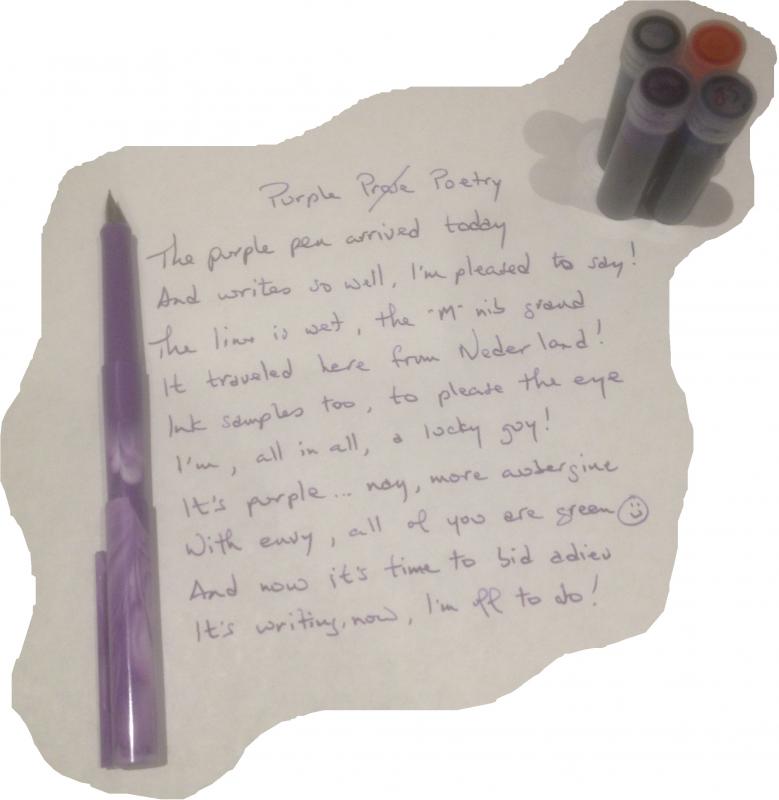 Purple Prose Poetry
The purple pen arrived today
And writes so well, I'm pleased to say!
The line is wet, the "M" nib grand
It traveled here from Nederland!
Ink samples too, to please the eye
I'm, all in all, a lucky guy!
It's purple... nay, more aubergine
With envy, all of you are green
And now it's time to bid adieu
It's writing, now, I'm off to do!